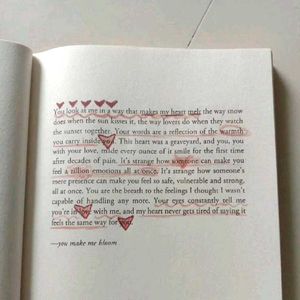 You look at me in a way that makes my heart melt the way snow
does when the sun kisses it, the way lovers do when they watch
the sunset together. Your words are a reflection of the warmth
you carry inside you. This heart was a graveyard, and you, you
with your love, made every ounce of it smile for the first time
after decades of pain. It's strange how someone can make you
feel a zillion emotions all at once. It's strange how someone's
mere presence can make you feel so safe, vulnerable and strong,
all at once. You are the breath to the feelings I thought I wasn't
capable of handling any more. Your eyes constantly tell me
you're in love with me, and my heart never gets tired of saying it
feels the same way for you.
—you make me bloom